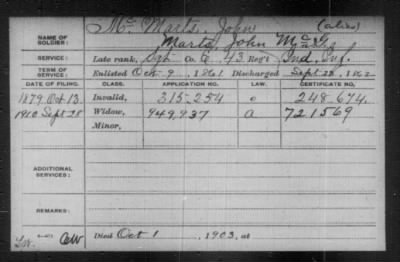 Mc Marts, John (alias)
NAME OF SOLDIER: Marts, John Mc
SERVICE: Late rank, Co. E, 43 Reg't Ind. Inf.
TERM OF SERVICE: Enlisted Oct 9, 1861 Discharged Sept 28, 1862
DATE OF FILING. CLASS. APPLICATION NO. LAW. CERTIFICATE NO.
1879 Oct 13. Invalid, 315.254 c 248.674.
1910 Sept 28 Widow, 949,937 a 721569
Minor,
ADDITIONAL SERVICES:
REMARKS:
Died Oct 1, 1903, at